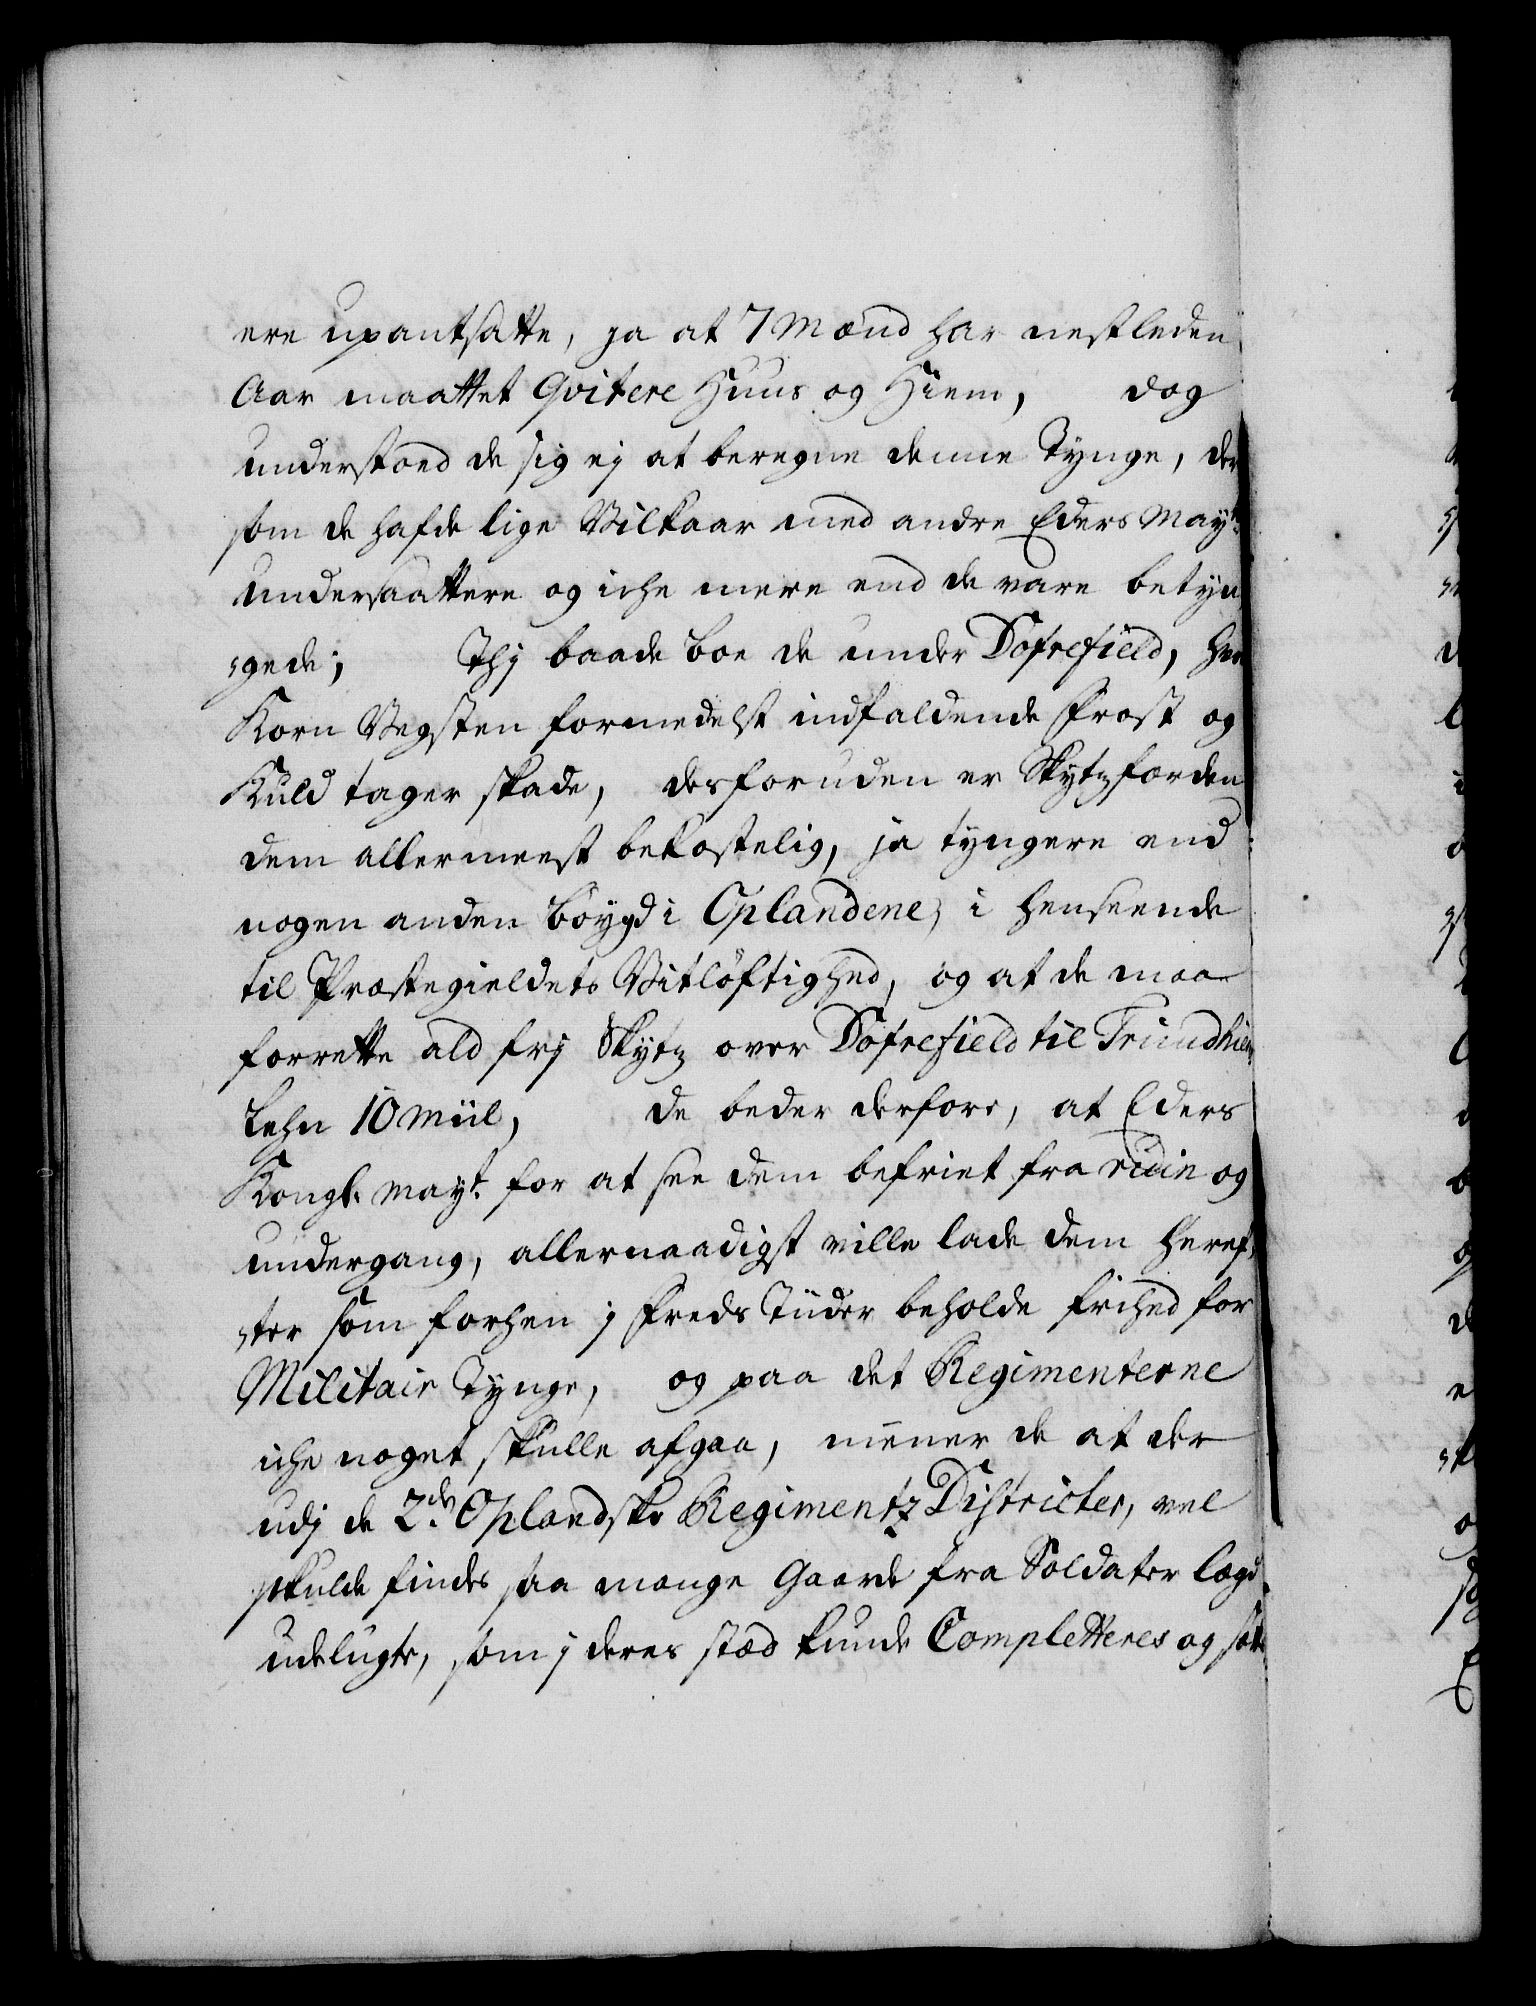 ere upantsatte, ja at 7 Mænd har nestleden
Aar maattet Qvitere Huus og Hiem, dog
understoed de sig ej at beregne denne Tynge, der
som de hafde lige Vilkaar med andre Eders Mayts
undersaattere og iche mere end de vare betyn
gede; Thj baade boe de under Dofrefield, hvor
Korn Vegsten formedelst indfaldende Frost og
Kuld tager skade, desforuden er Skytzfærden
dem allermeest bekostelig, ja tyngere end
nogen anden bøygd i Oplandene, i henseende
til Præstegieldets Vitløftighed, og at de maa
forrette ald frj Skytz over Dofrefield til Trundhiem
Lehn 10 Miil, de beder derfore, at Eders
Kongl. Mayt. for at see dem befriet fra ruin og
undergang, allernaadigst ville lade dem heref
ter som forhen j Freds Tiider beholde frihed for
Militair Tynge, og paa det Regimenterne
iche noget skulle afgaa, mener de at der
udj de 2de Oplandske Regimentz Districter, vel
skulde findes saa mange Gaarde fra Soldater lægd
udelugte, som j deres stæd kunde Completteres og